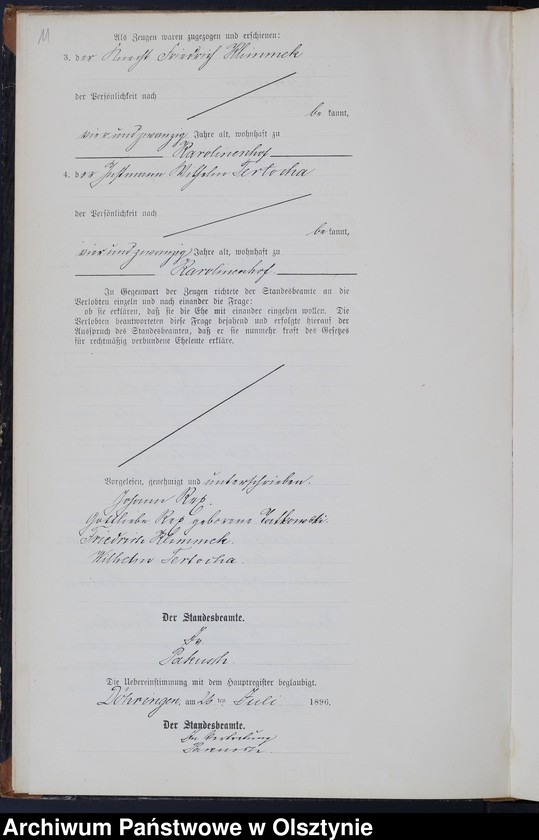 11
Als Zeugen waren zugezogen und erschienen:
3. der Knecht Friedrich Klimmek
der Persönlichkeit nach
be kannt,
vierundzwanzig Jahre alt, wohnhaft zu
Karolinenhof
4. der Instmann Wilhelm Tertocha
der Persönlichkeit nach
be kannt,
vierundzwanzig Jahre alt, wohnhaft zu
Karolinenhof
In Gegenwart der Zeugen richtete der Standesbeamte an die
Verlobten einzeln und nach einander die Frage:
ob sie erklären, daß sie die Ehe mit einander eingehen wollen. Die
Verlobten beantworteten diese Frage bejahend und erfolgte hierauf der
Ausspruch des Standesbeamten, daß er sie nunmehr kraft des Gesetzes
für rechtmäßig verbundene Eheleute erkläre.
Vorgelesen, genehmigt und unterschrieben.
Johann Rep.
Gottliebe Rep geborene
Friedrich Klimmek.
Wilhelm Tertocha.
Der Standesbeamte.
Die Uebereinstimmung mit dem Hauptregister beglaubigt.
Döhringen, am 26 ten Juli 1896.
Der Standesbeamte.
In Vertretung
Archiwum Państwowe w Olsztynie